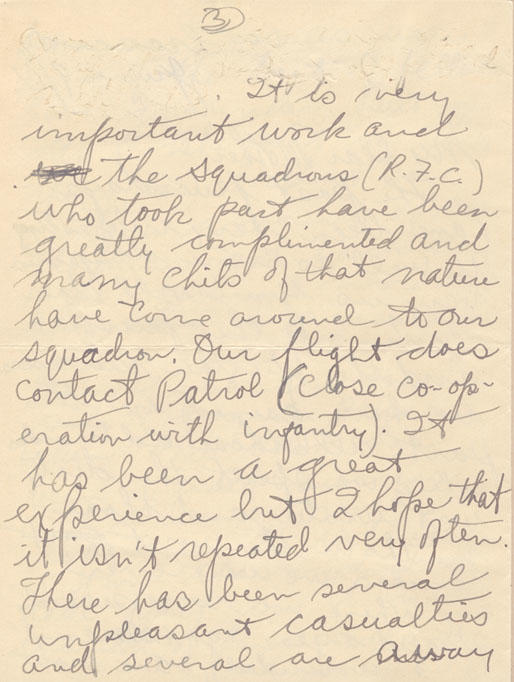 3
It is very
important work and
the squadrons (R.F.C.)
who took part have been
greatly complimented and
many chits of that nature
have come around to our
squadron. Our flight does
contact Patrol (close co-op-
eration with infantry). It
has been a great
experience but I hope that
it isn't repeated very often.
There has been several
unpleasant casualties
and several are away